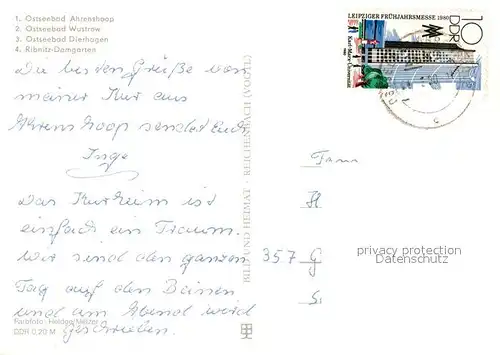 1. Ostseebad Ahrenshoop
2. Ostseebad Wustrow
3. Ostseebad Dierhagen
4. Ribnitz-Damgarten
Die besten Grüße von
meiner Kur aus
Ahrenshoop sendet Euch
Inge
Das Kurheim ist
einfach ein Traum.
Wir sind den ganzen
Tag auf den Beinen
und am Abend wird
geschrieben.
Farbfoto: Heldge/Melzer
DDR 0,20 M
BILD UND HEIMAT · REICHENBACH (VOGTL)
LEIPZIGER FRÜHJAHRSMESSE 1980
10
DDR
Karl-Marx-Universität
Fam
H
357 G
S
privacy protection
Datenschutz